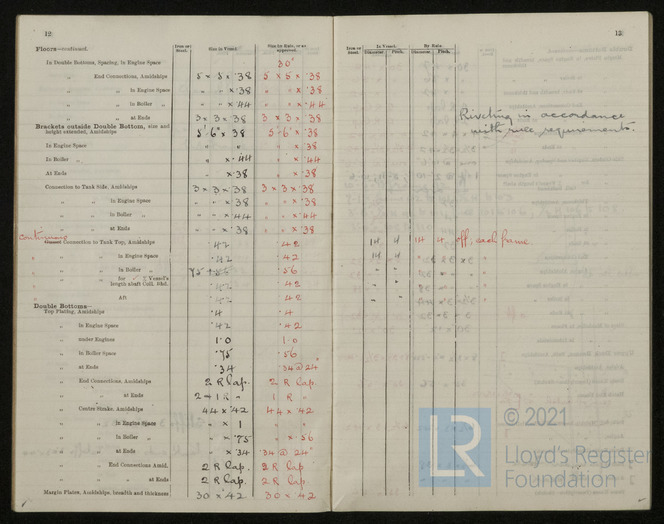 12
Iron or Steel. Size in Vessel. Size by Rule, or as approved.
Floors—continued.
In Double Bottoms, Spacing, in Engine Space 30"
„ End Connections, Amidships 5 × 5 × .38 5 × 5 × .38
„ „ in Engine Space „ „ × .38 „ „ × .38
„ „ in Boiler „ „ „ × .44 „ „ × .44
„ „ at Ends 3 × 3 × .38 3 × 3 × .38
Brackets outside Double Bottom, size and
height extended, Amidships 5'6" × .38 5'6" × .38
In Engine Space „ „ „ × .38
In Boiler „ „ × .44 „ × .44
At Ends × .38 „ × .38
Connection to Tank Side, Amidships 3 × 3 × .38 3 × 3 × .38
„ „ in Engine Space „ „ × .38 „ „ × .38
„ „ in Boiler „ „ „ × .44 „ „ × .44
„ „ at Ends „ „ × .38 „ „ × .38
continuous
Connection to Tank Top, Amidships .42 .42
„ „ in Engine Space .42 .42
„ „ in Boiler „ .56
„ „ for Vessel's
length abaft Coll. Bhd. .42 .42
„ „ Aft .42 .42
Double Bottoms—
Top Plating, Amidships .4 .4
„ In Engine Space .42 .42
„ under Engines 1.0 1.0
„ In Boiler Space .75 .56
„ at Ends .34 .34 @ 24"
„ End Connections, Amidships 2 R lap. 2 R Lap.
„ „ at Ends 2 + 1 R „ 1 R „
„ Centre Strake, Amidships 44 × .42 44 × .42
„ „ in Engine Space „ × 1
„ „ in Boiler „ „ × .75 „ × .56
„ „ at Ends „ × .34 .34 @ 24"
„ „ End Connections Amid. 2 R lap. 2 R lap
„ „ „ at Ends 2 R lap. 2 R lap.
Margin Plates, Amidships, breadth and thickness 30 × .42 30 × .42
13
Iron or Steel. In Vessel. By Rule.
Diameter. Pitch. Diameter. Pitch.
Riveting in accordance
with rule requirements.
14 4 14 4 off, each frame
14 4
„ „
„ „
„ „
LR
© 2021
Lloyd's Register
Foundation